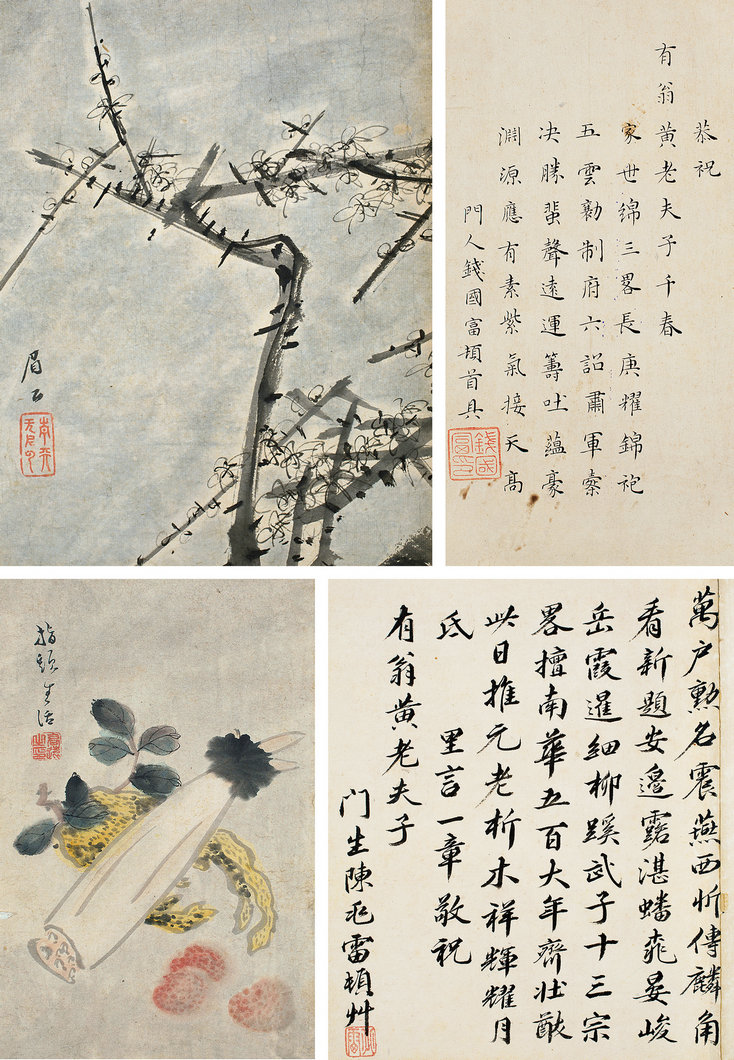 眉石
恭祝
有翁黄老夫子千春
家世绵三畧長庚耀錦袍
五雲勷制府六詔肅軍櫜
决勝蜚聲遠運籌吐蕴豪
淵源應有素紫氣接天高
門人錢國富頓首具
錢國富印
指頭生活
萬户勲名震燕西忻傳麟角
看新題安邊露湛蟠桃晏峻
岳霞暹細柳蹊武子十三宗
畧擅南華五百大年齊壮猷
此日推元老析木祥輝耀月
氐 里言一章敬祝
有翁黄老夫子
门生陳丕雷頓艸